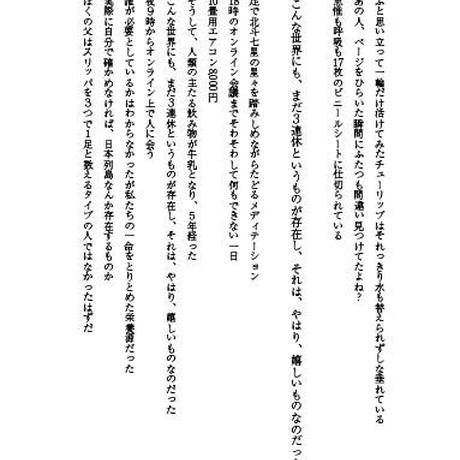 ふと思い立って一輪だけ活けてみたチューリップはそれっきり水も替えられずしな垂れている
あの人、ページをひらいた瞬間にふたつも間違い見つけてたよね？
思惟も呼吸も17枚のビニールシートに仕切られている
こんな世界にも、まだ３連休というものが存在し、それは、やはり、嬉しいものなのだっ
足で北斗七星の星々を踏みしめながらたどるメディテーション
18時のオンライン会議までそわそわして何もできない一日
10畳用エアコン8000円
そうして、人類の主たる飲み物が牛乳となり、５年経った
こんな世界にも、まだ３連休というものが存在し、それは、やはり、嬉しいものなのだった
夜９時からオンライン上で人に会う
誰が必要としているかはわからなかったが私たちの一命をとりとめた栄養源だった
実際に自分で確かめなければ、日本列島なんか存在するものか
ぼくの父はスリッパを３つで１足と数えるタイプの人ではなかったはずだ